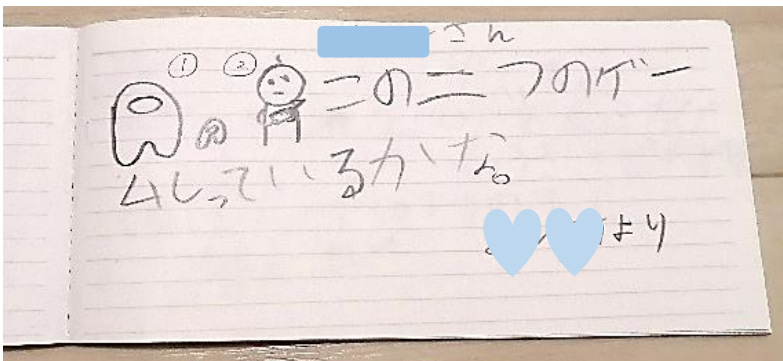 さん
① ②
この二つのゲー
ムしっているかな。
より